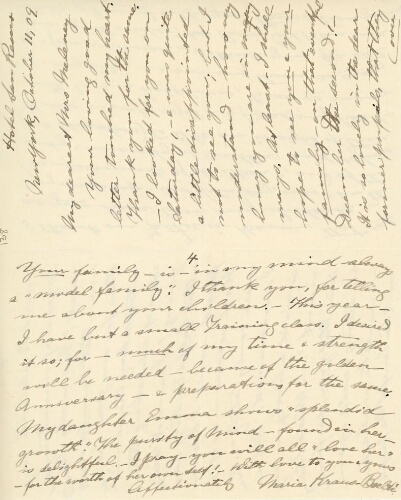 Hotel San Remo
New York, October 11, 09
My dearest Mrs
Your loving good
letter touched my heart.
Thank you for the same.
- I looked for you on
Saturday, & was quite
a little disappointed
not to see you, but I
understand - how very
busy you are in many
ways. At least I shall
hope to see you & your
family - on that
December the second! -
It is so lovely in the dear
former pupils that they
(over
128
4
Your family - is - in my mind always
a "model family". I thank you, for telling
me about your children. - This year -
I have but a small Training class. I desired
it so; for - much of my time & strength
will be needed - because of the golden
Anniversary - & preparations for the same.
My daughter Emma shows a splendid
growth. The purity of mind - found in her -
is delightful. - I pray - you will all & love her &
- for the worth of her own self! - With love to you & yours
Affectionately Maria Kraus-Boelté